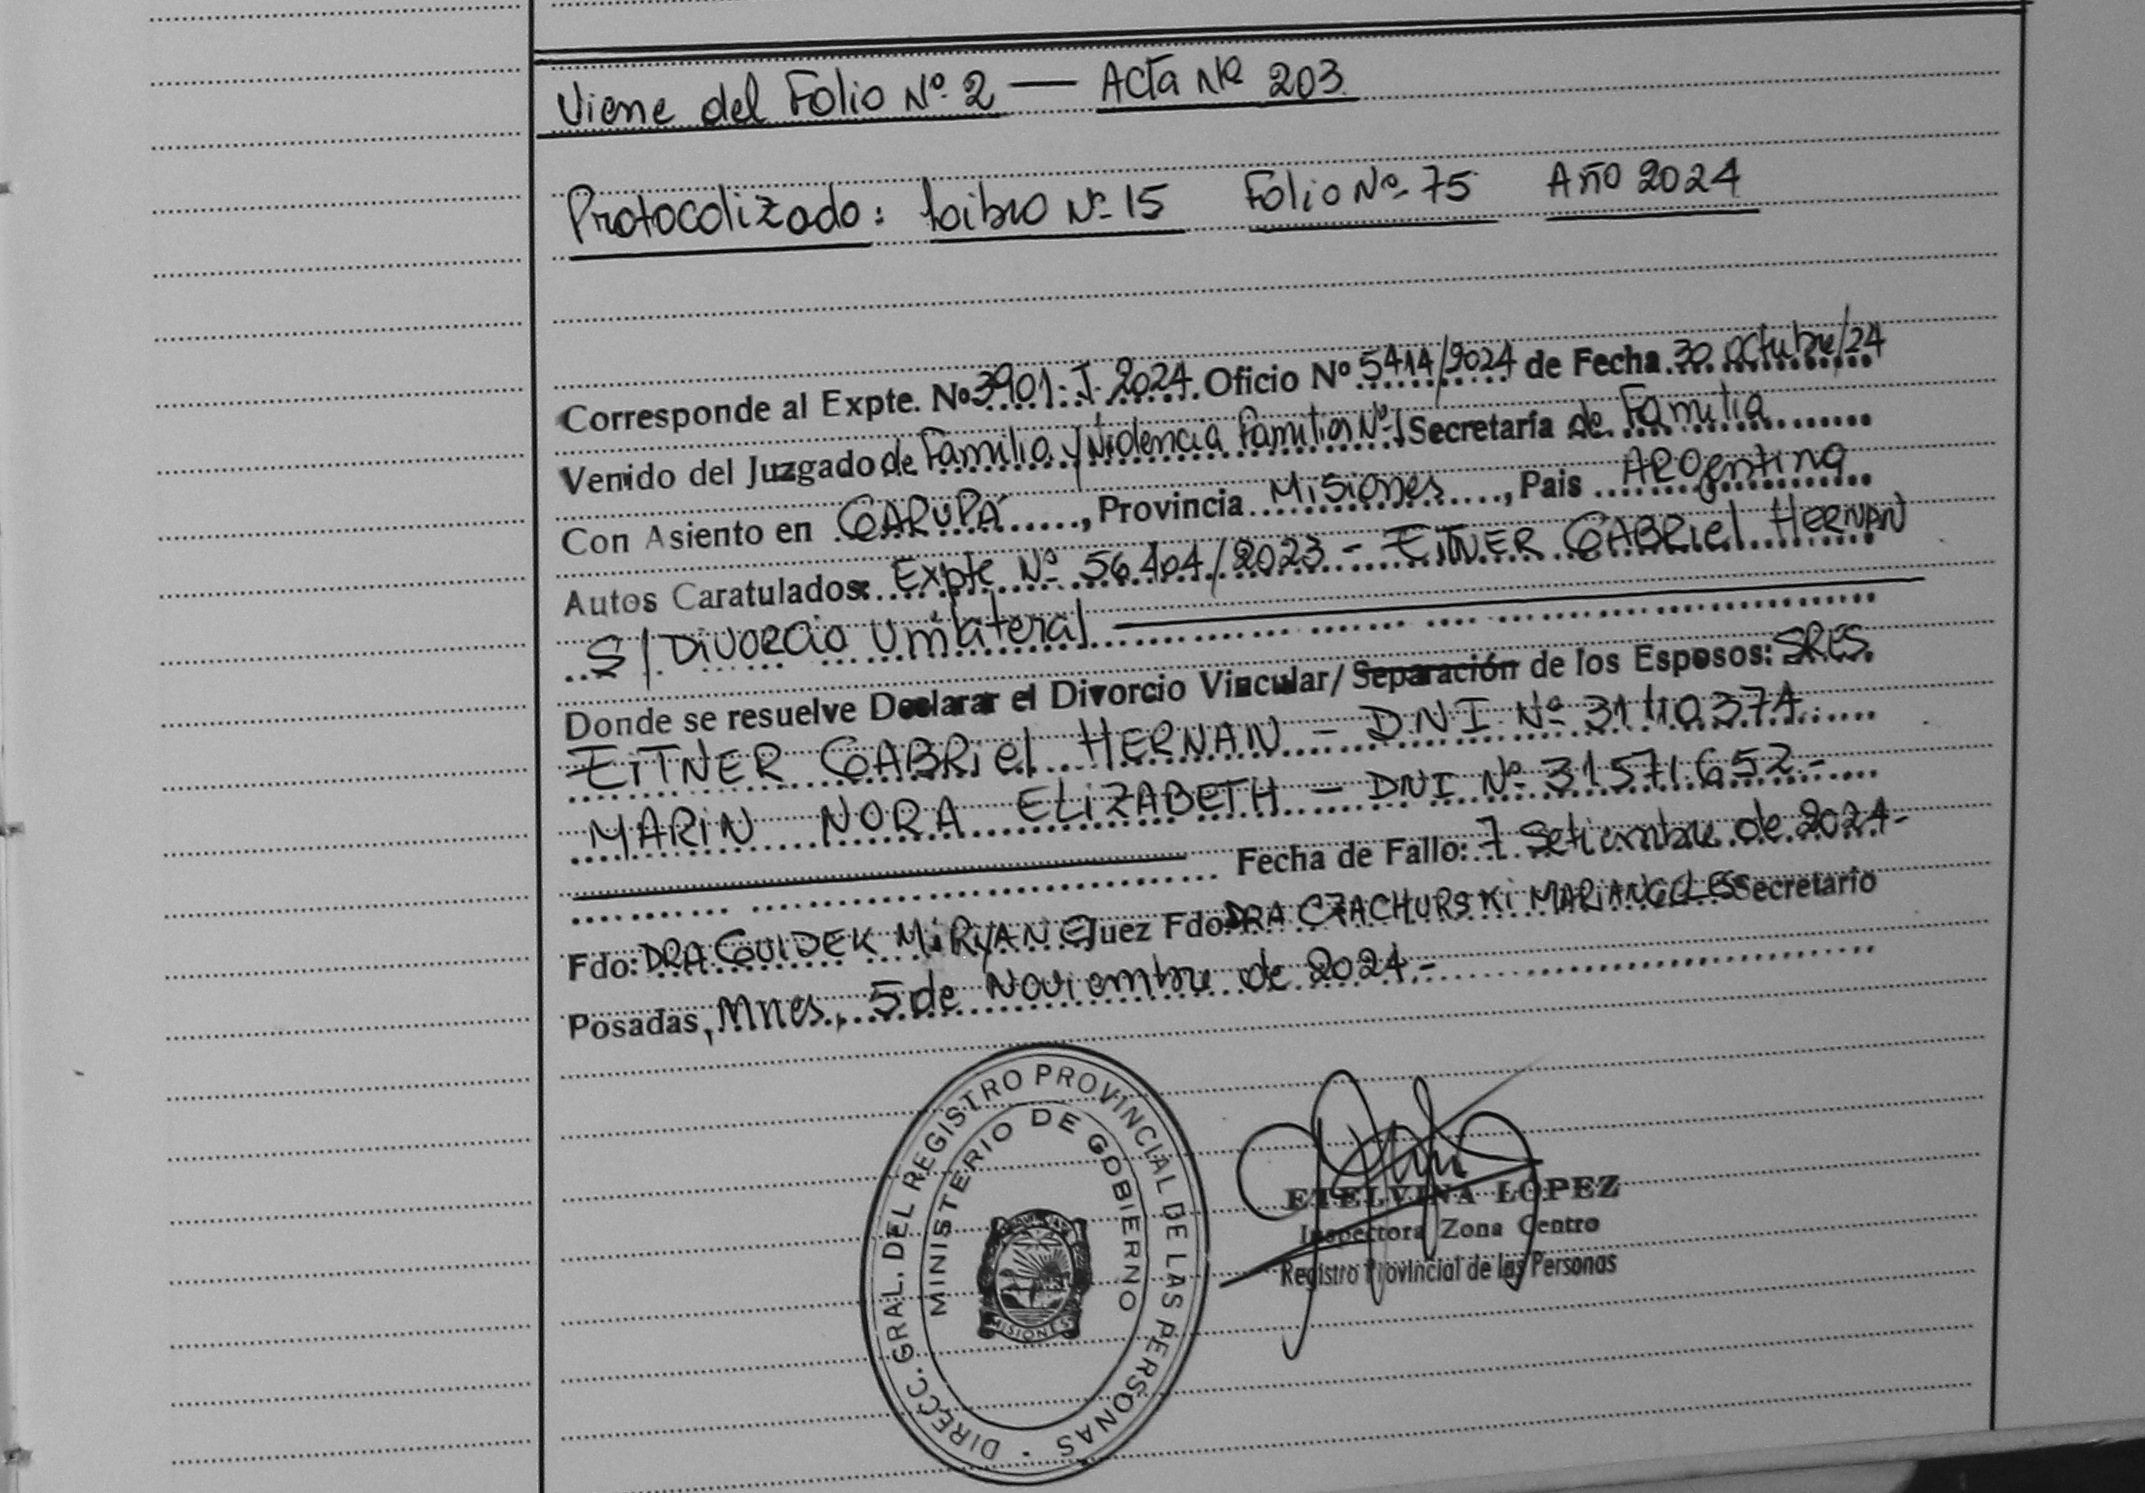 Viene del Folio Nº 2 — Acta Nº 203
Protocolizado: Libro Nº 15 Folio Nº 75 Año 2024
Corresponde al Expte. Nº 3901-J-2024. Oficio Nº 5414/2024 de Fecha 30 octubre/24
Venido del Juzgado de Familia y Violencia Familiar Nº 1 Secretaría de Familia
Con Asiento en GARUPÁ, Provincia Misiones, Pais ARgentina
Autos Caratulados: Expte Nº 56404/2023 - EITNER GABRiel HERNAN
S/ Divorcio unilateral
Donde se resuelve Declarar el Divorcio Vincular/ Separación de los Esposos: SRES.
EITNER GABRiel HERNAN - DNI Nº
MARIN NORA ELIZABETH - DNI Nº 31571.652.-
Fecha de Fallo: 7 Setiembre de 2024-
Fdo: DRA GUIDEK MiRYAN E Juez Fdo: DRA CZACHURSKI MARIANGELES Secretario
Posadas, Mnes, 5 de Noviembre de 2024.-
DIRECC. GRAL. DEL REGISTRO PROVINCIAL DE LAS PERSONAS
MINISTERIO DE GOBIERNO
MISIONES
ETELVINA LOPEZ
Inspectora Zona Centro
Registro Provincial de las Personas